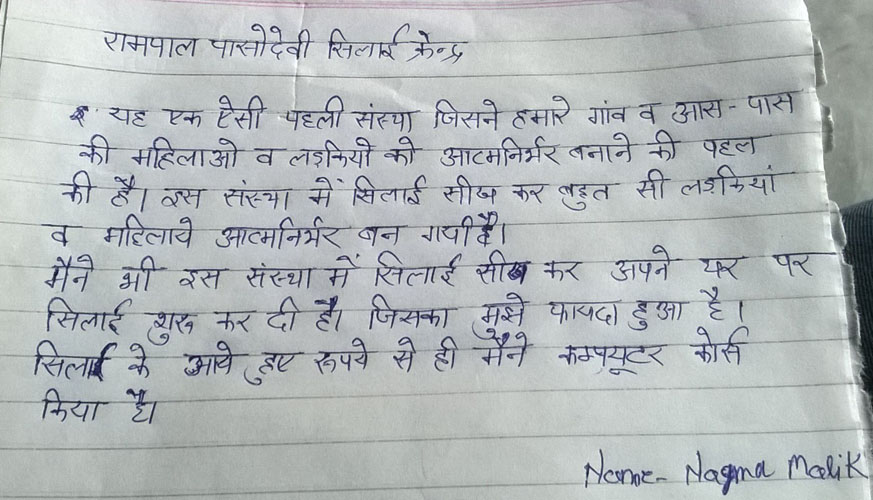 रामपाल पासोदेवी सिलाई केन्द्र
यह एक ऐसी पहली संस्था जिसने हमारे गांव व आस-पास
की महिलाओ व लड़कियो को आत्मनिर्भर बनाने की पहल
की है। इस संस्था में सिलाई सीख कर बहुत सी लडकियां
व महिलाये आत्मनिर्भर बन गयी है।
मैने भी इस संस्था में सिलाई सीख कर अपने घर पर
सिलाई शुरू कर दी है। जिसका मुझे फायदा हुआ है।
सिलाई के आये हुए रूपये से ही मैने कम्पयूटर कोर्स
किया है।
Name- Nagma Malik